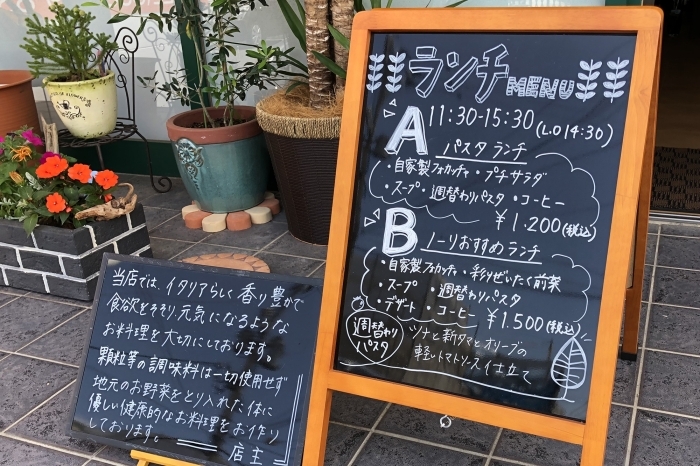 ランチMENU
11:30-15:30 (L.O 14:30)
A パスタランチ
・自家製フォカッチャ・プチサラダ
・スープ・週替わりパスタ・コーヒー
¥1.200(税込)
B ノーリおすすめランチ
・自家製フォカッチャ・彩りぜいたく前菜
・スープ ・週替わりパスタ
・デザート ・コーヒー ¥1.500(税込)
週替わり
パスタ
ツナと新タマとオリーブの
軽いトマトソース仕立て
当店では、イタリアらしく香り豊かで
食欲をそそり、元気になるような
お料理を大切にしております。
顆粒等の調味料は一切使用せず
地元のお野菜をとり入れた体に
優しい健康的なお料理をお作り
しております。
店主